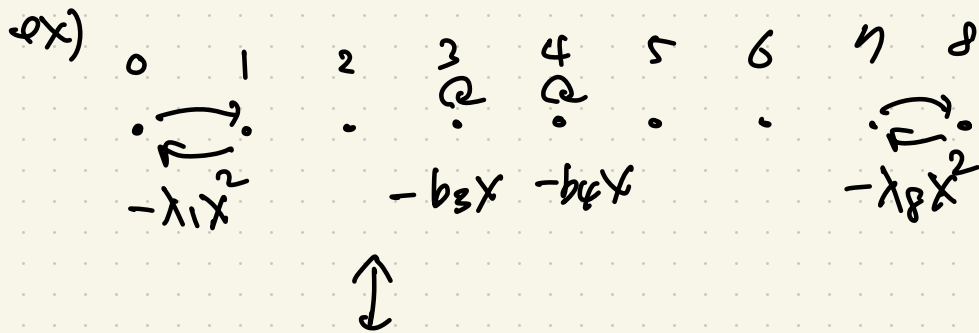 ex)
0 1 2 3 4 5 6 7 8
-λ₁x² -b₃x -b₄x -λ₈x²